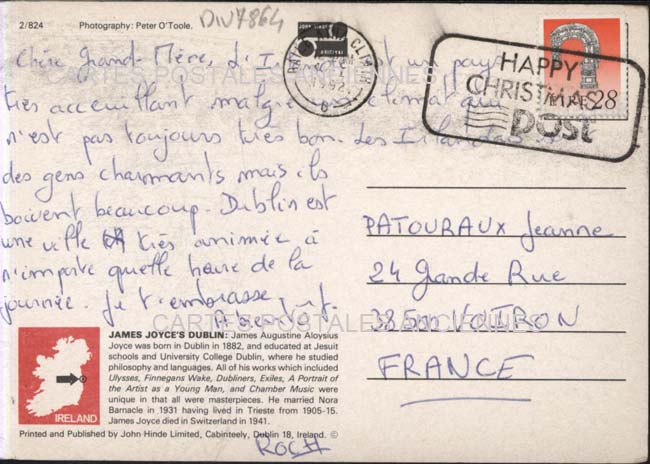 2/824 Photography: Peter O'Toole. DIV7864
Chère Grand-Mère, L'Irlande est un pays
très accueillant malgré un climat qui
n'est pas toujours très bon. Les Irlandais sont
des gens charmants mais ils
boivent beaucoup. Dublin est
une ville très animée à
n'importe quelle heure de la
journée. Je t'embrasse
CARTES POSTALES ANCIENNES
CARTES POSTALES ANCIENNES
1992
HAPPY
CHRISTMAS
POST
EIRE 28
PATOURAUX Jeanne
24 Grande Rue
38500 VOIRON
FRANCE
IRELAND
JAMES JOYCE'S DUBLIN: James Augustine Aloysius
Joyce was born in Dublin in 1882, and educated at Jesuit
schools and University College Dublin, where he studied
philosophy and languages. All of his works which included
Ulysses, Finnegans Wake, Dubliners, Exiles, A Portrait of
the Artist as a Young Man, and Chamber Music were
unique in that all were masterpieces. He married Nora
Barnacle in 1931 having lived in Trieste from 1905-15.
James Joyce died in Switzerland in 1941.
Printed and Published by John Hinde Limited, Cabinteely, Dublin 18, Ireland. ©
ROCH